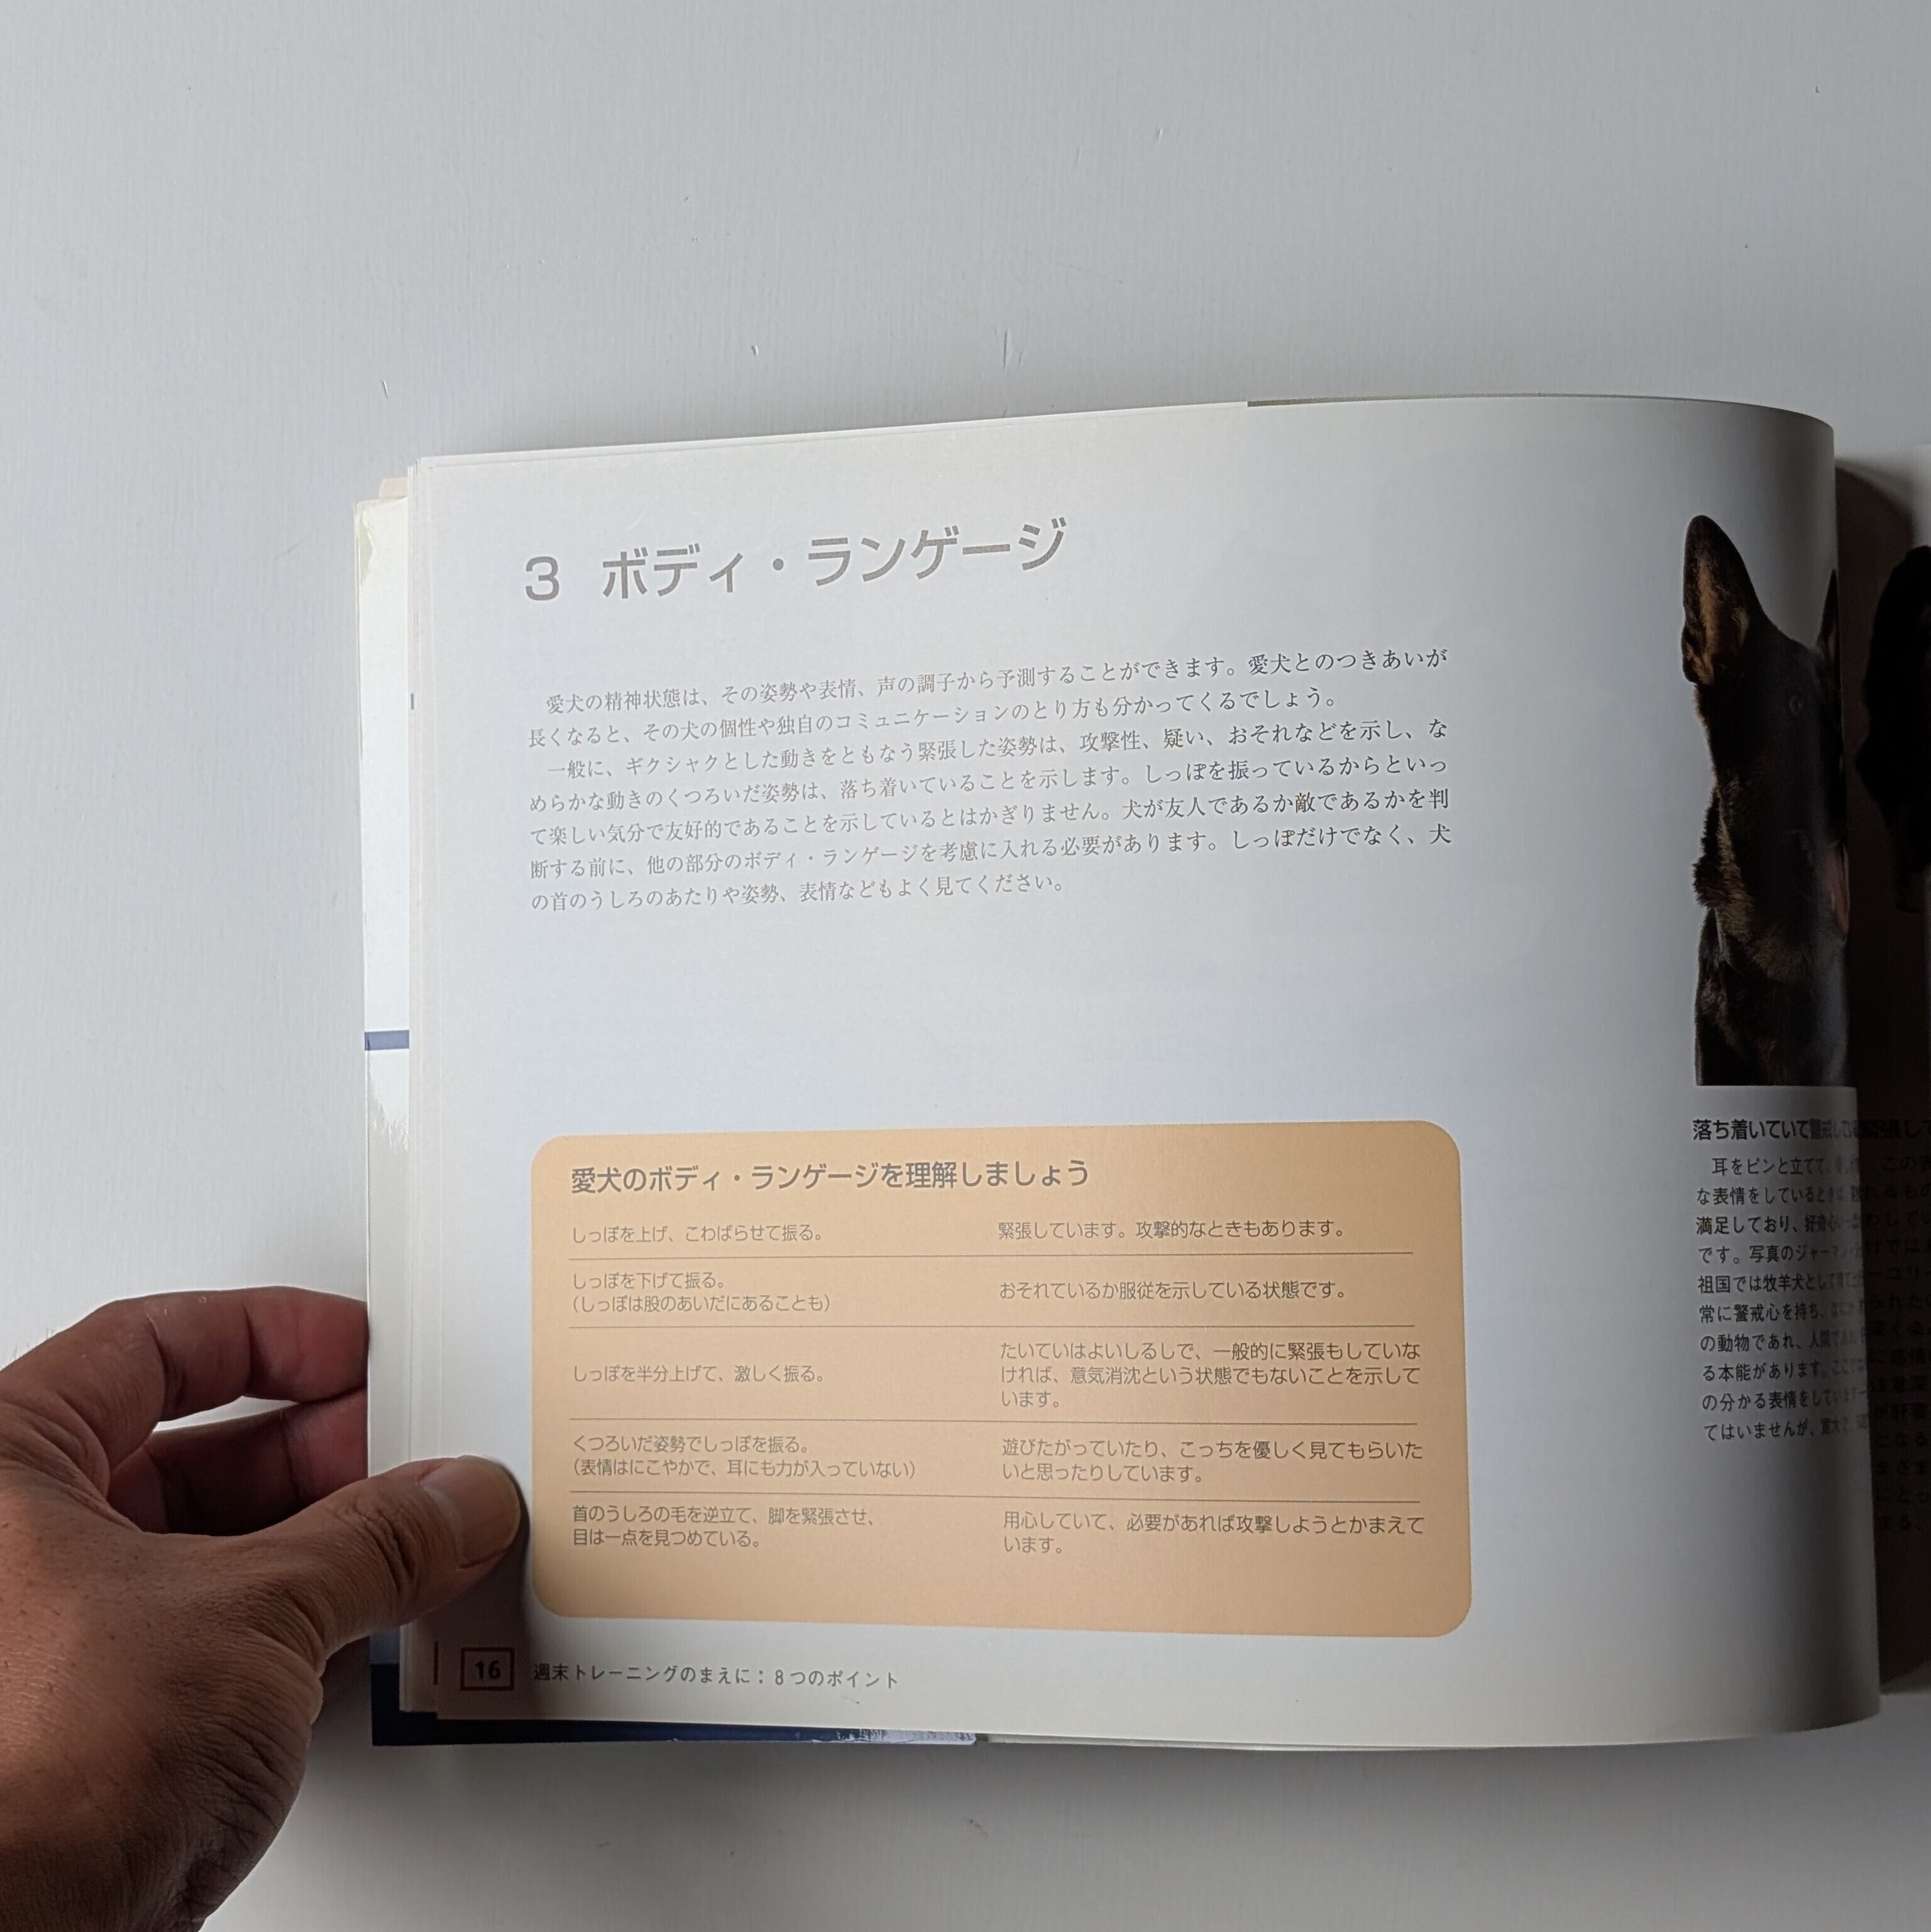 3 ボディ・ランゲージ
愛犬の精神状態は、その姿勢や表情、声の調子から予測することができます。愛犬とのつきあいが
長くなると、その犬の個性や独自のコミュニケーションのとり方も分かってくるでしょう。
一般に、ギクシャクとした動きをともなう緊張した姿勢は、攻撃性、疑い、おそれなどを示し、な
めらかな動きのくつろいだ姿勢は、落ち着いていることを示します。しっぽを振っているからといっ
て楽しい気分で友好的であることを示しているとはかぎりません。犬が友人であるか敵であるかを判
断する前に、他の部分のボディ・ランゲージを考慮に入れる必要があります。しっぽだけでなく、犬
の首のうしろのあたりや姿勢、表情などもよく見てください。
愛犬のボディ・ランゲージを理解しましょう
しっぽを上げ、こわばらせて振る。 緊張しています。攻撃的なときもあります。
しっぽを下げて振る。
(しっぽは股のあいだにあることも) おそれているか服従を示している状態です。
しっぽを半分上げて、激しく振る。 たいていはよいしるしで、一般的に緊張もしていな
ければ、意気消沈という状態でもないことを示して
います。
くつろいだ姿勢でしっぽを振る。
(表情はにこやかで、耳にも力が入っていない) 遊びたがっていたり、こっちを優しく見てもらいた
いと思ったりしています。
首のうしろの毛を逆立て、脚を緊張させ、
目は一点を見つめている。 用心していて、必要があれば攻撃しようとかまえて
います。
落ち着いていて
耳をピンと立てて、
な表情をしているときは、
満足しており、好奇心
です。写真のジャーマン
祖国では牧羊犬として
常に警戒心を持ち、
の動物であれ、人間
る本能があります。
の分かる表情をして
てはいませんが、
16 週末トレーニングのまえに：8つのポイント